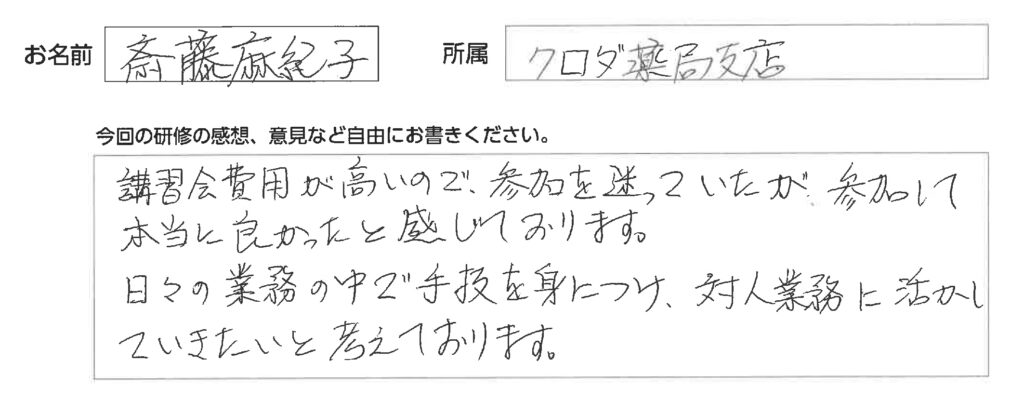 お名前 斎藤麻紀子 所属 クロダ薬局支店
今回の研修の感想、意見など自由にお書きください。
講習会費用が高いので、参加を迷っていたが、参加して
本当に良かったと感じております。
日々の業務の中で手技を身につけ、対人業務に活かし
ていきたいと考えております。